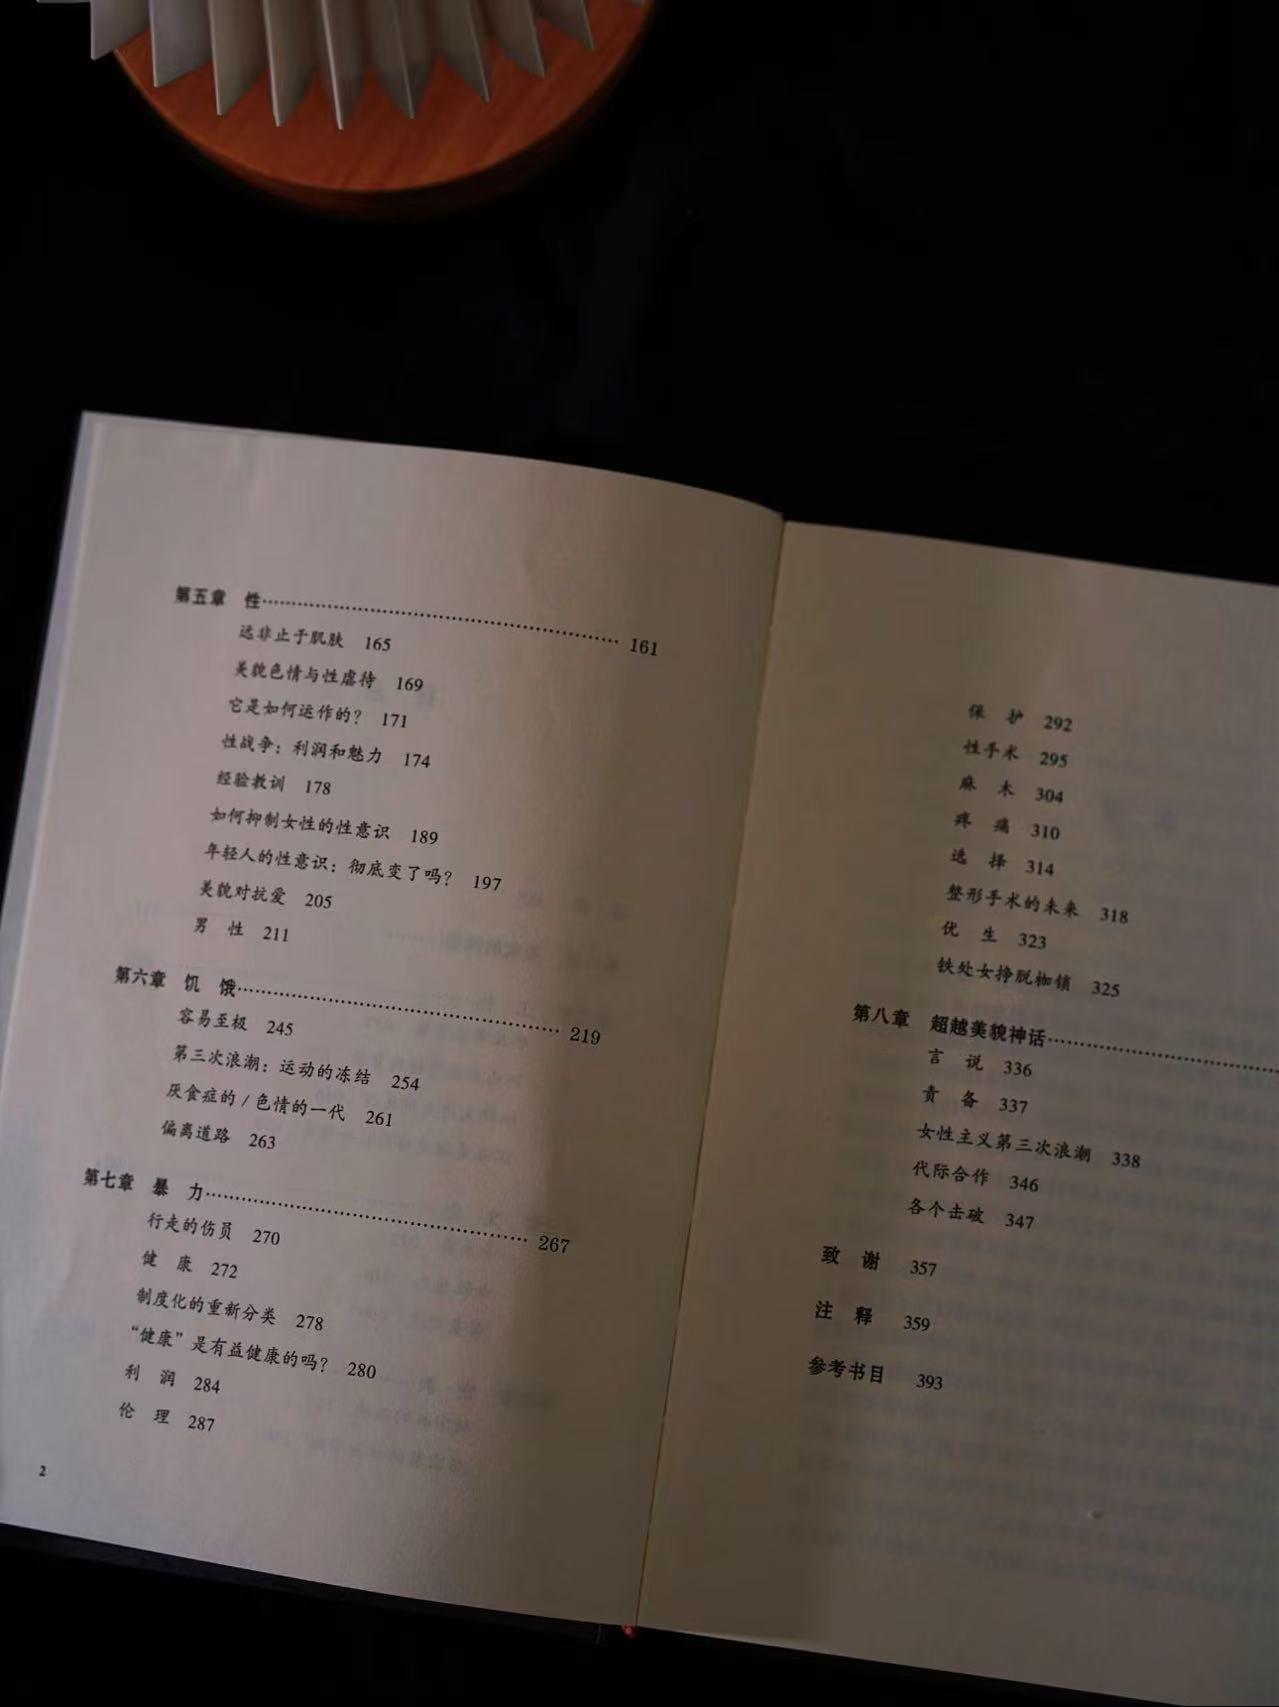 第五章 性…………………………………………… 161
远非止于肌肤 165
美貌色情与性虐待 169
它是如何运作的？ 171
性战争：利润和魅力 174
经验教训 178
如何抑制女性的性意识 189
年轻人的性意识：彻底变了吗？ 197
美貌对抗爱 205
男 性 211
第六章 饥 饿…………………………………………… 219
容易至极 245
第三次浪潮：运动的冻结 254
厌食症的/色情的一代 261
偏离道路 263
第七章 暴 力…………………………………………… 267
行走的伤员 270
健 康 272
制度化的重新分类 278
“健康”是有益健康的吗？ 280
利 润 284
伦 理 287
2
保 护 292
性手术 295
麻 木 304
疼 痛 310
选 择 314
整形手术的未来 318
优 生 323
铁处女挣脱枷锁 325
第八章 超越美貌神话……………………………
言 说 336
责 备 337
女性主义第三次浪潮 338
代际合作 346
各个击破 347
致 谢 357
注 释 359
参考书目 393